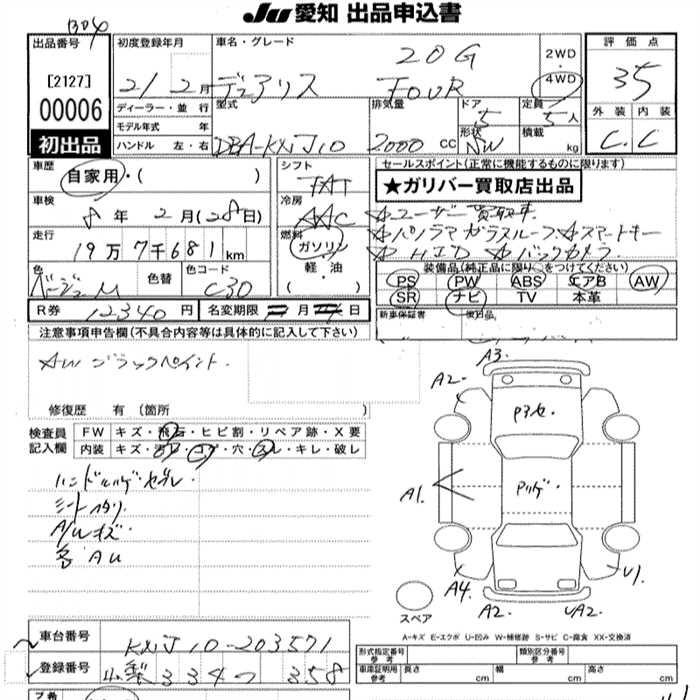 B04
JU 愛知 出品申込書
出品番号 [2127] 00006 初出品
初度登録年月 21 2月
車名・グレード 20G デュアリス FOUR
2WD ・ 4WD
評価点 3.5
外装 内装 C. C
ディーラー・並行
モデル年式 年
ハンドル 左・右
型式 DBA-KNJ10
排気量 2000 CC
ドア 5
形状 SW
定員 5人
積載 kg
車歴 自家用・( )
車検 8年 2月(28日)
走行 19万7千681km
色 ベージュM
色替
色コード C30
シフト FAT
冷房 AAC
燃料 ガソリン 軽・油 ( )
セールスポイント(正常に機能するものに限ります)
★ガリバー買取店出品
☆ユーザー買取車
☆パノラマガラスルーフ ☆スマートキー
☆HID ☆バックカメラ
装備品(純正品に限り○をつけてください)
PS PW ABS エアB AW
SR ナビ TV 本革
新車保証書
R券 12340円
名変期限 月 日
注意事項申告欄(不具合内容等は具体的に記入して下さい)
AWブラックペイント.
修復歴 有 (箇所 )
検査員記入欄
FW キズ・飛石・ヒビ割・リペア跡・X要
内装 キズ・汚レ・コゲ・穴・スレ・キレ・破レ
シートヘタリ
A/Wキズ
各AU
A3
A2
P3セ
A1
A4
A2
A2
U1
スペア
A-キズ E-エクボ U-凹み W-補修跡 S-サビ C-腐食 XX-交換済
車台番号 KNJ10-203571
登録番号 山梨 334つ 358
形式指定番号 参考
類別区分番号 参考
車庫証明用 参考 長さ 幅 高さ